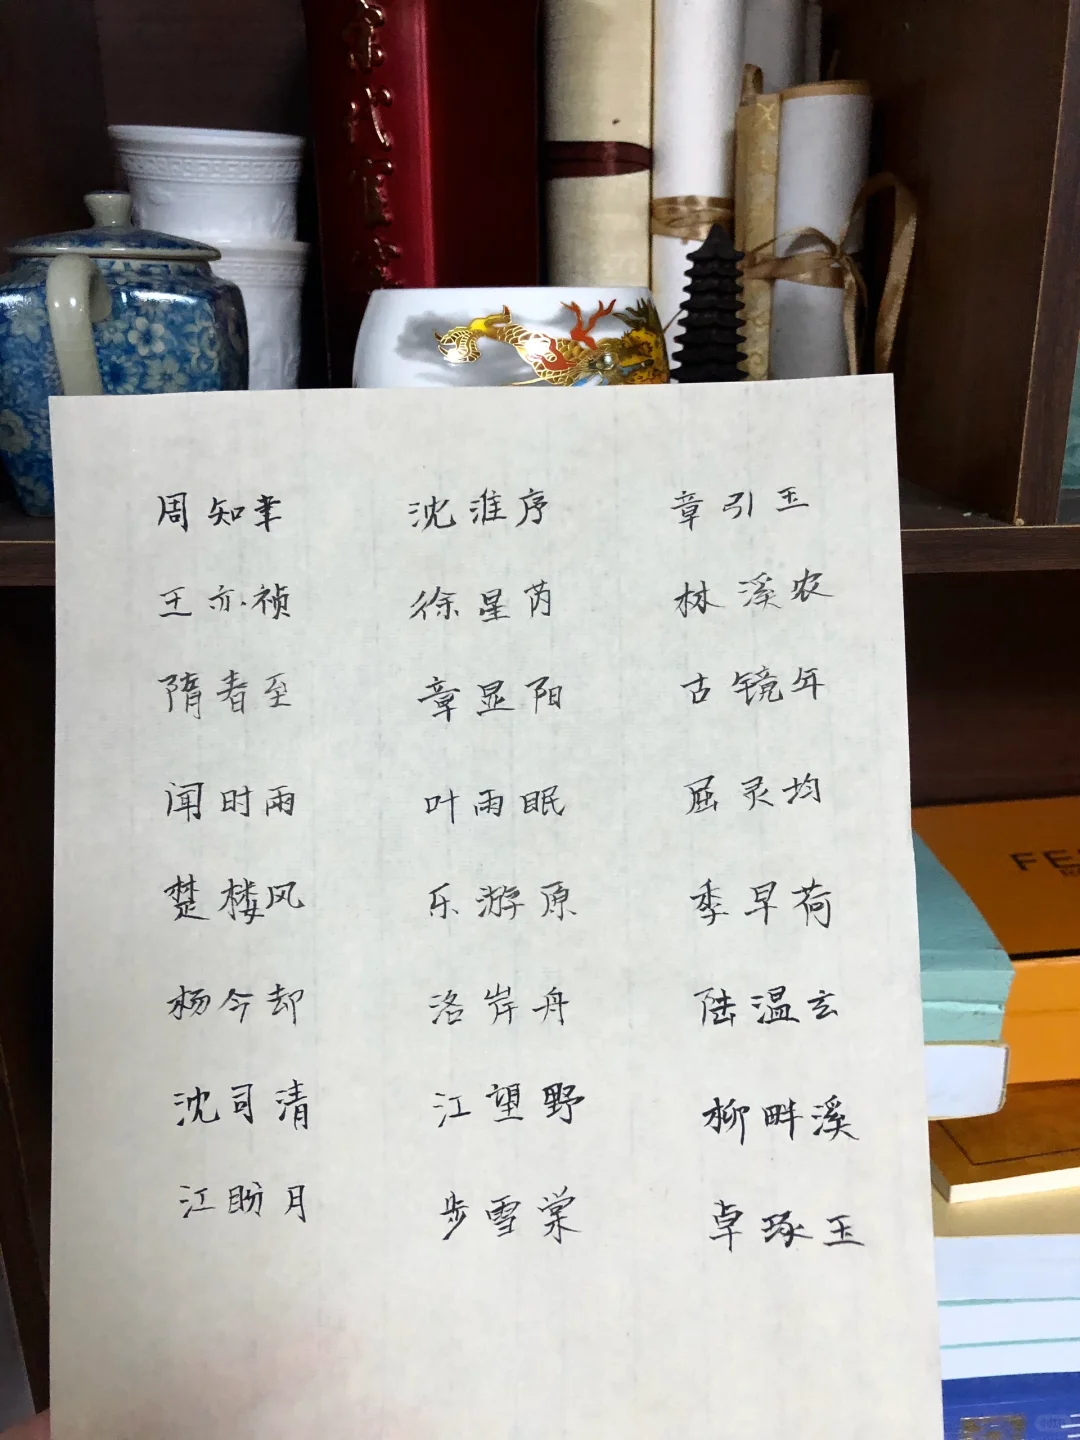 宋代官窑
周知聿 沈淮序 章引玉
王亦祯 徐星芮 林溪农
隋春至 章显阳 古镜年
闻时雨 叶雨眠 屈灵均
楚楼风 乐游原 季早荷
杨今却 洛岸舟 陆温玄
沈司清 江望野 柳畔溪
江盼月 步雪棠 卓琢玉
FE